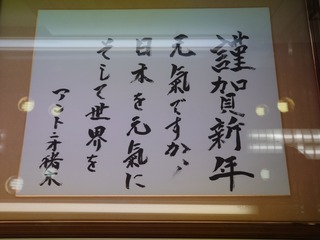 謹賀新年
元氣ですか、
日本を元氣に
そして世界を
アントニオ猪木